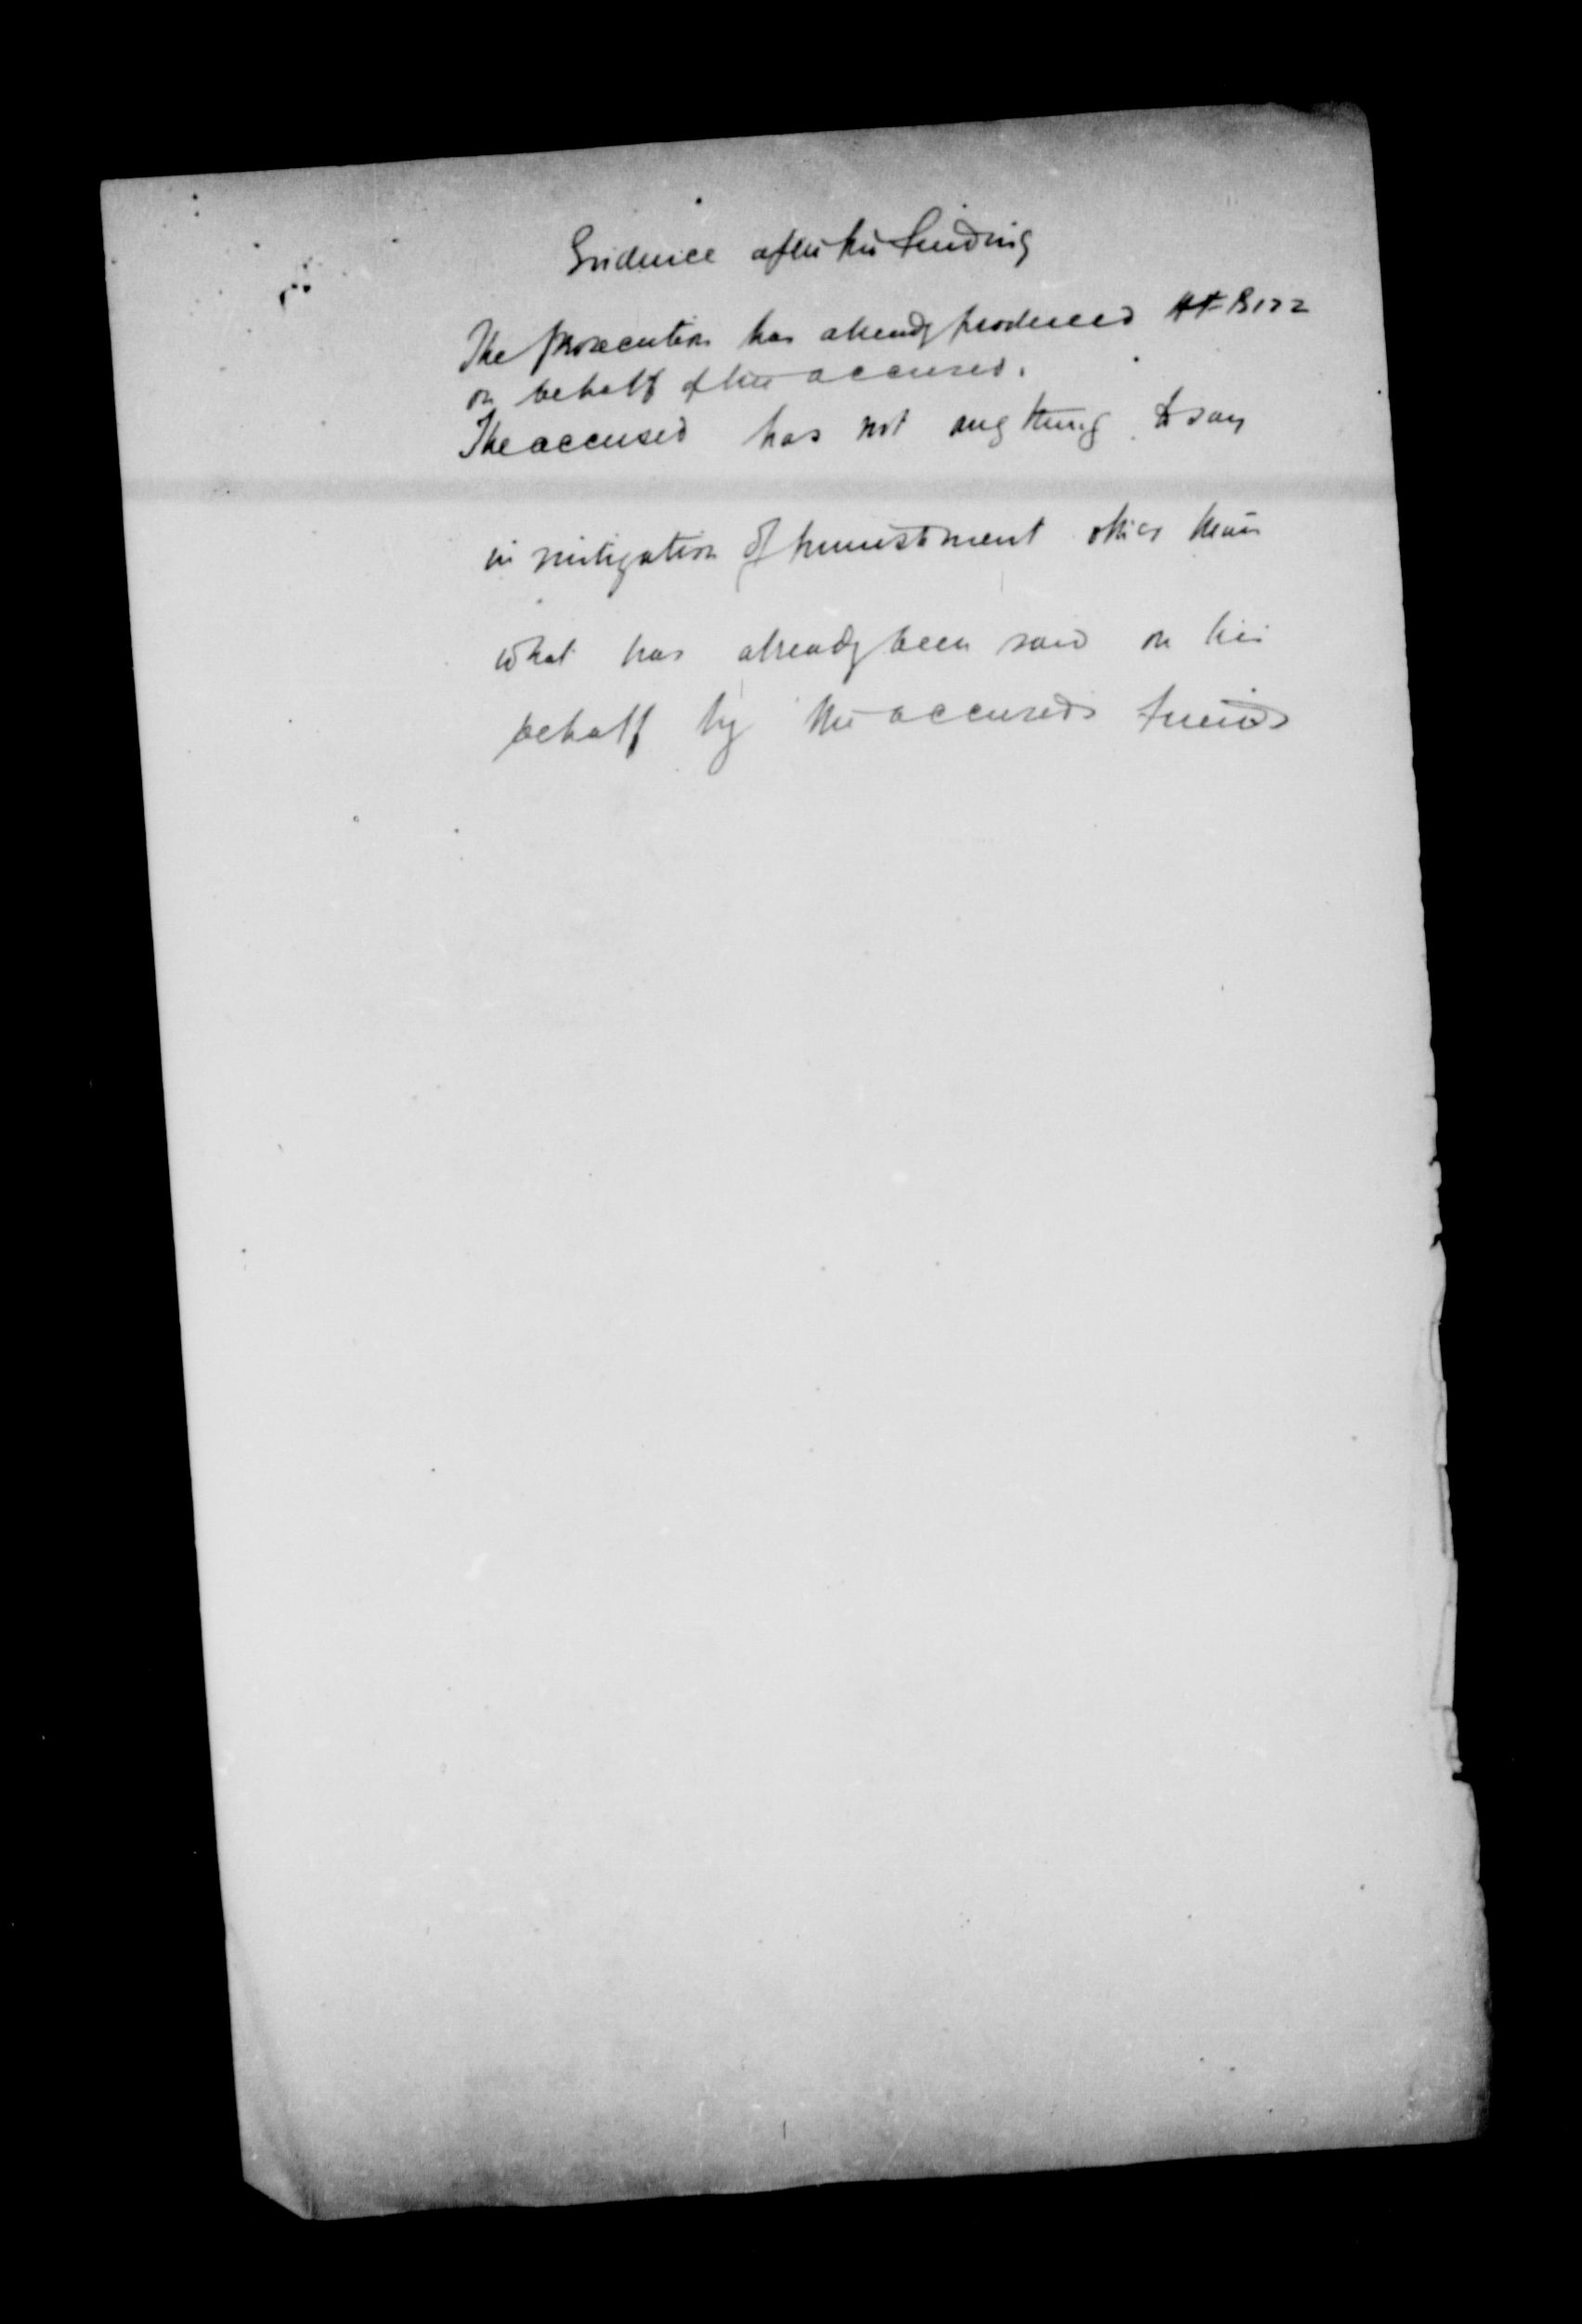 Evidence after the finding
The prosecution has already produced AF B122
on behalf of the accused.
The accused has not anything to say
in mitigation of punishment other than
what has already been said on his
behalf by the accuseds friend